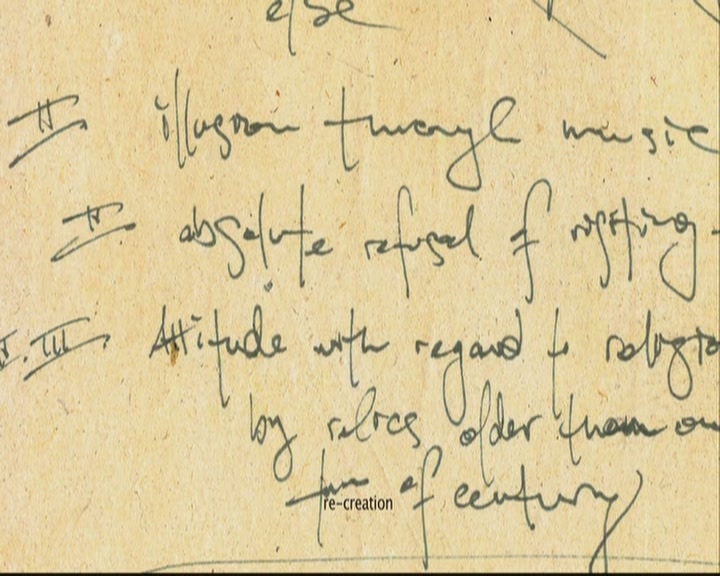 else
II illusion through music
II absolute refusal of
II.III Attitude with regard to
by relics older than
turn of century
re-creation